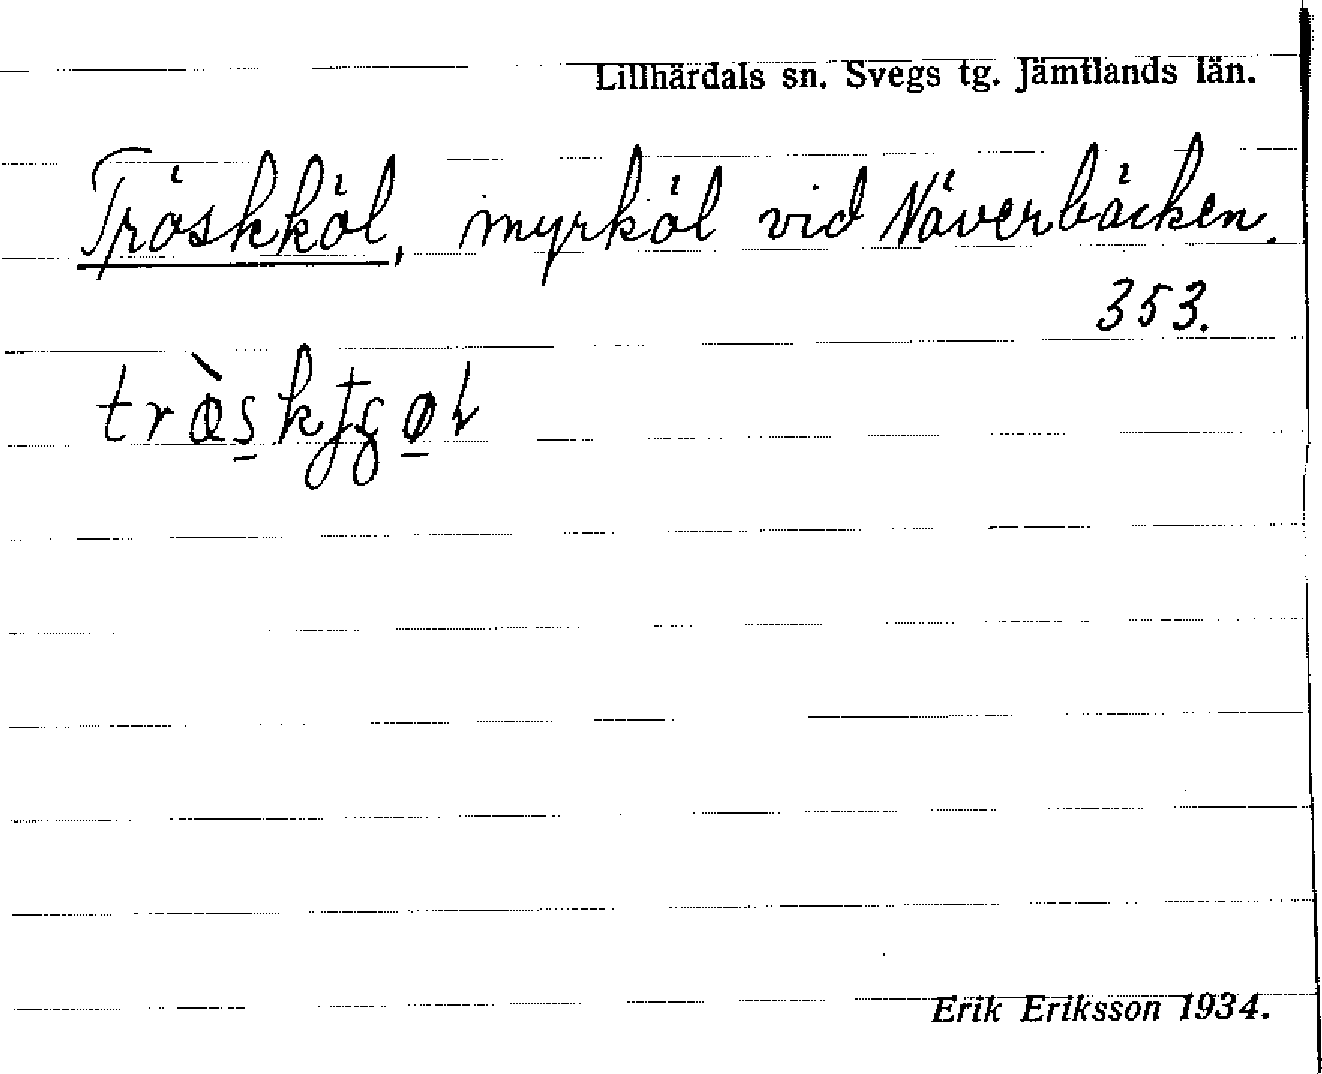 Lillhärdals sn. Svegs tg. Jämtlands län.
Träskköl, myrköl vid Näverbäcken.
353.
Erik Eriksson 1934.